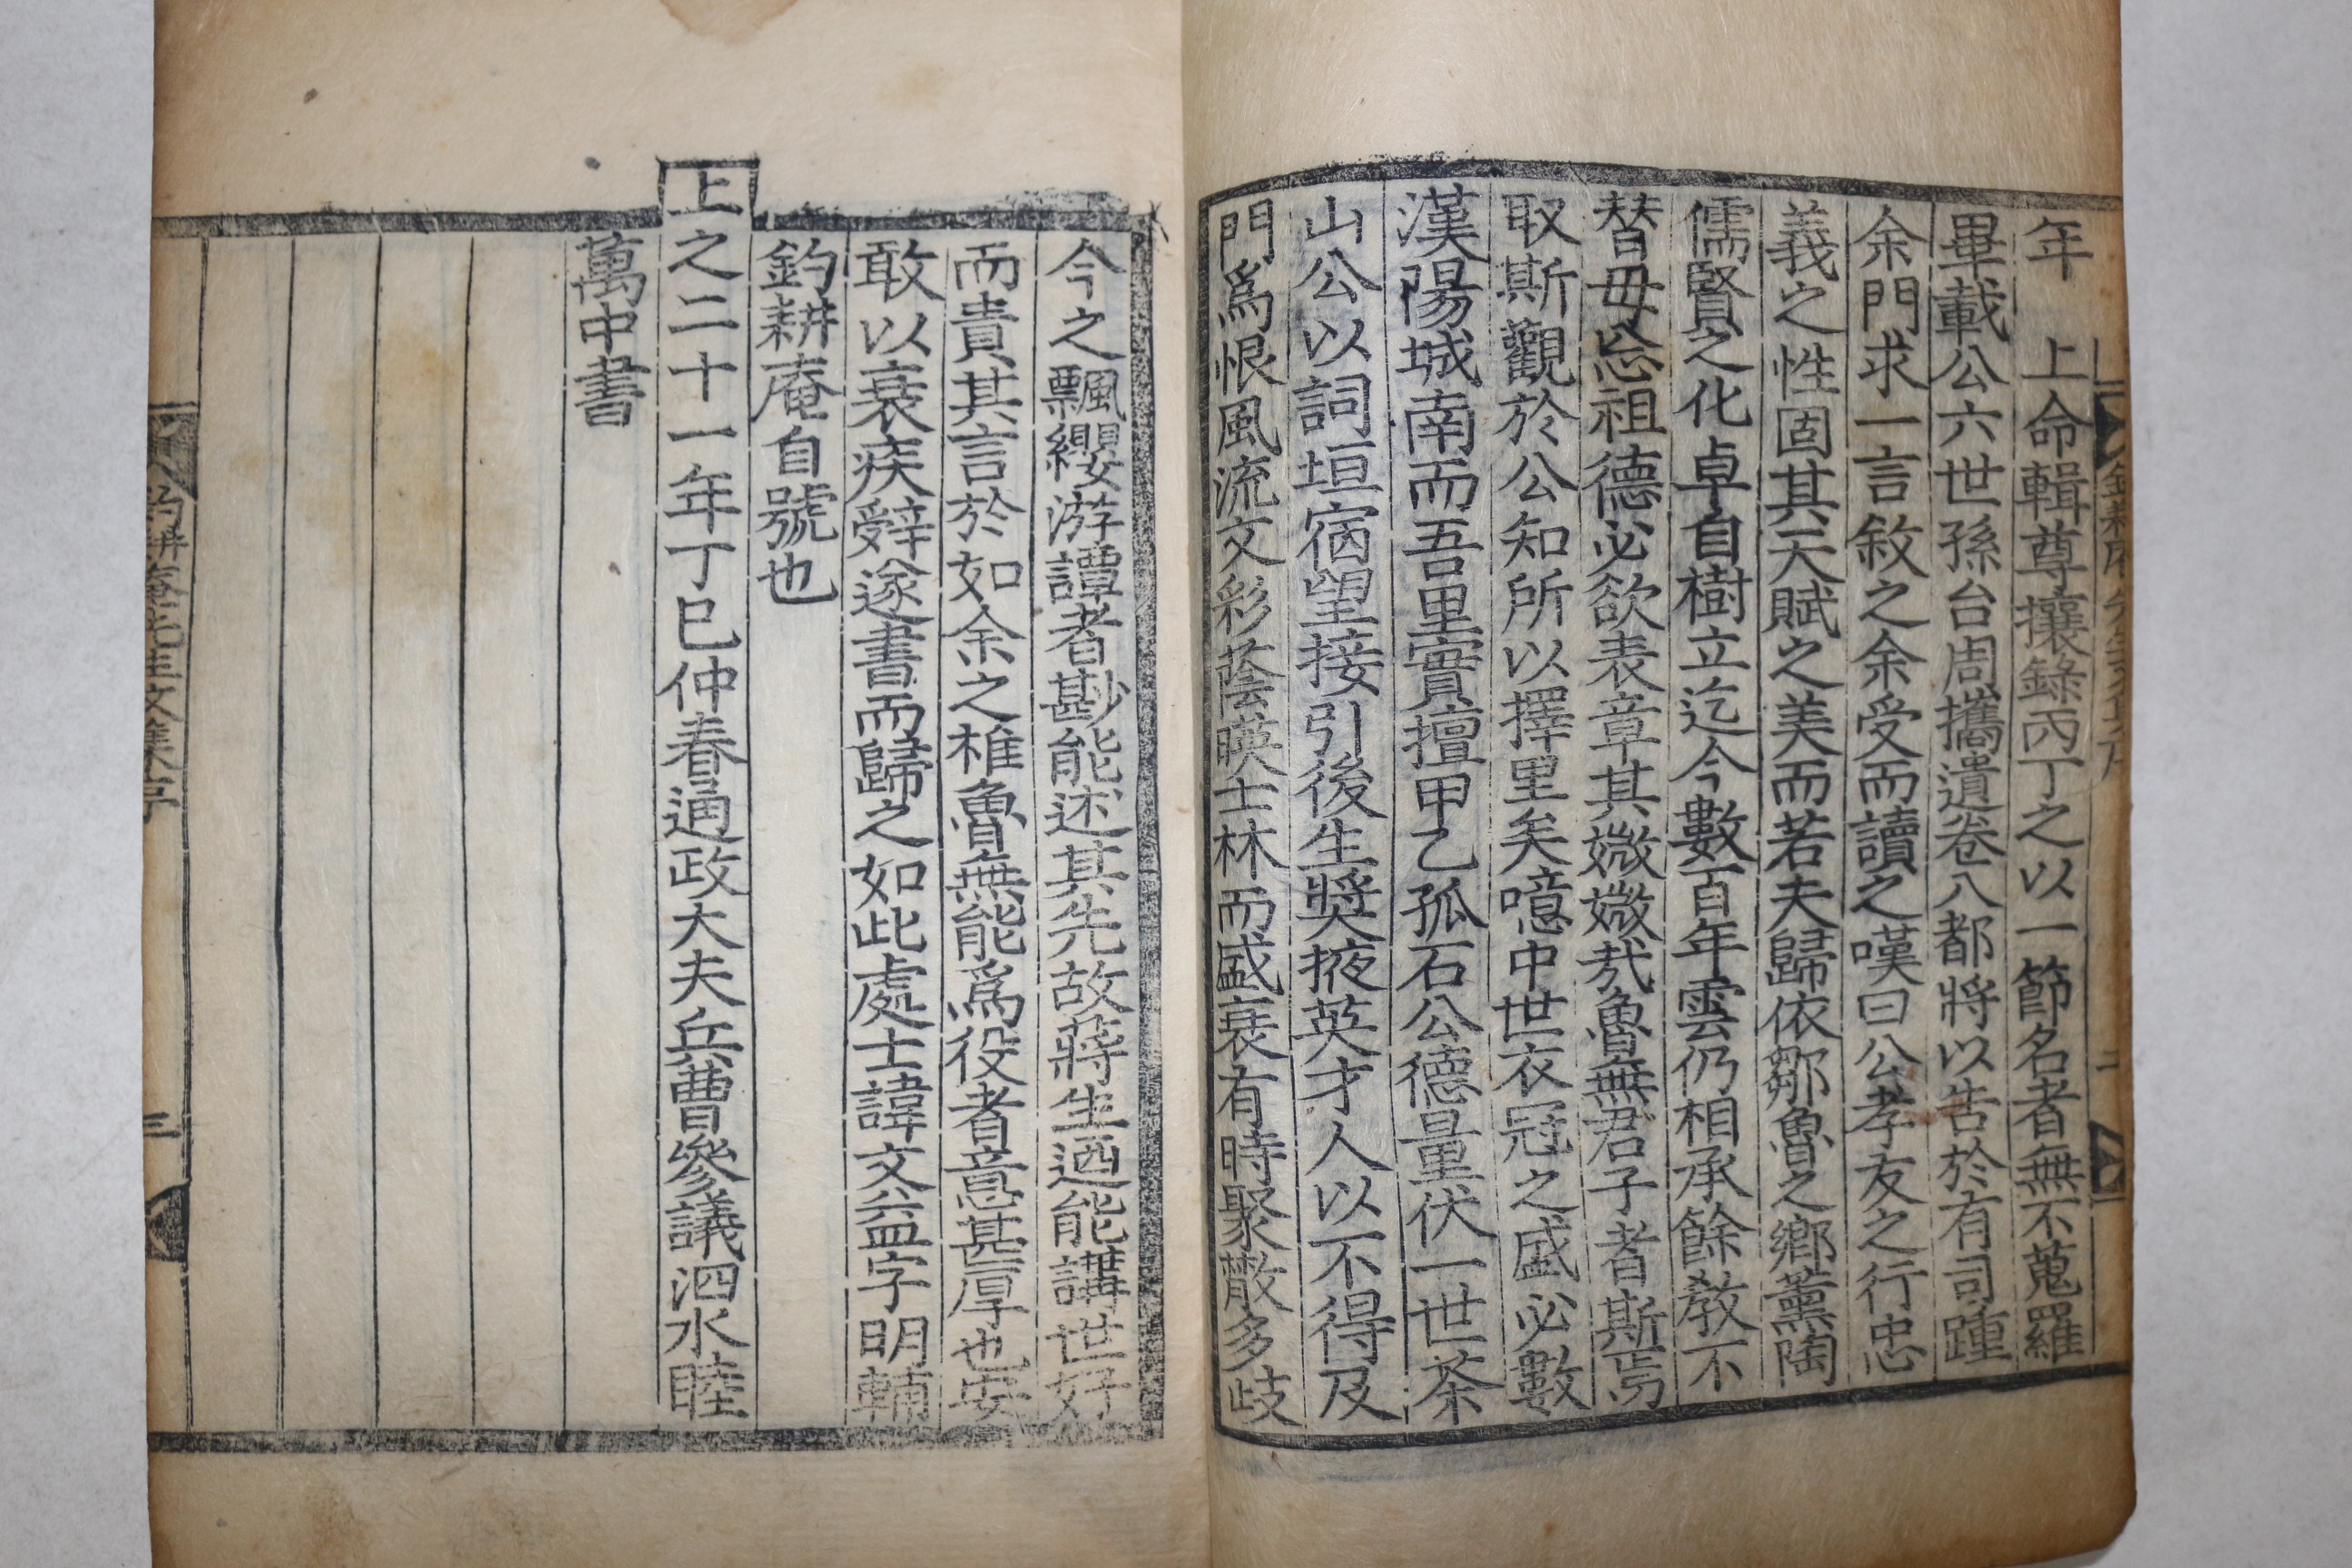 年　上命輯尊攘錄丙丁之以一節名者無不蒐羅
畢載公六世孫台周攜遺卷八都將以告於有司踵
余門求一言敘之余受而讀之嘆曰公孝友之行忠
義之性固其天賦之美而若夫歸依鄒魯之鄉薰陶
儒賢之化卓自樹立迄今數百年雲仍相承餘敎不
替毋忘祖德必欲表章其媺媺哉魯無君子者斯焉
取斯觀於公知所以擇里矣噫中世衣冠之盛必數
漢陽城南而吾里實擅甲乙孤石公德量伏一世茶
山公以詞垣宿望接引後生奬掖英才人以不得及
門爲恨風流文彩蔭暎士林而盛衰有時聚散多歧
今之飄纓游譚者尠能述其先故蔣生迺能講世好
而貴其言於如余之椎魯無能爲役者意甚厚也安
敢以衰疾辭遂書而歸之如此處士諱文益字明輔
釣耕庵自號也
上之二十一年丁巳仲春通政大夫兵曹參議泗水睦
萬中書
釣耕庵先生文集序
三
二